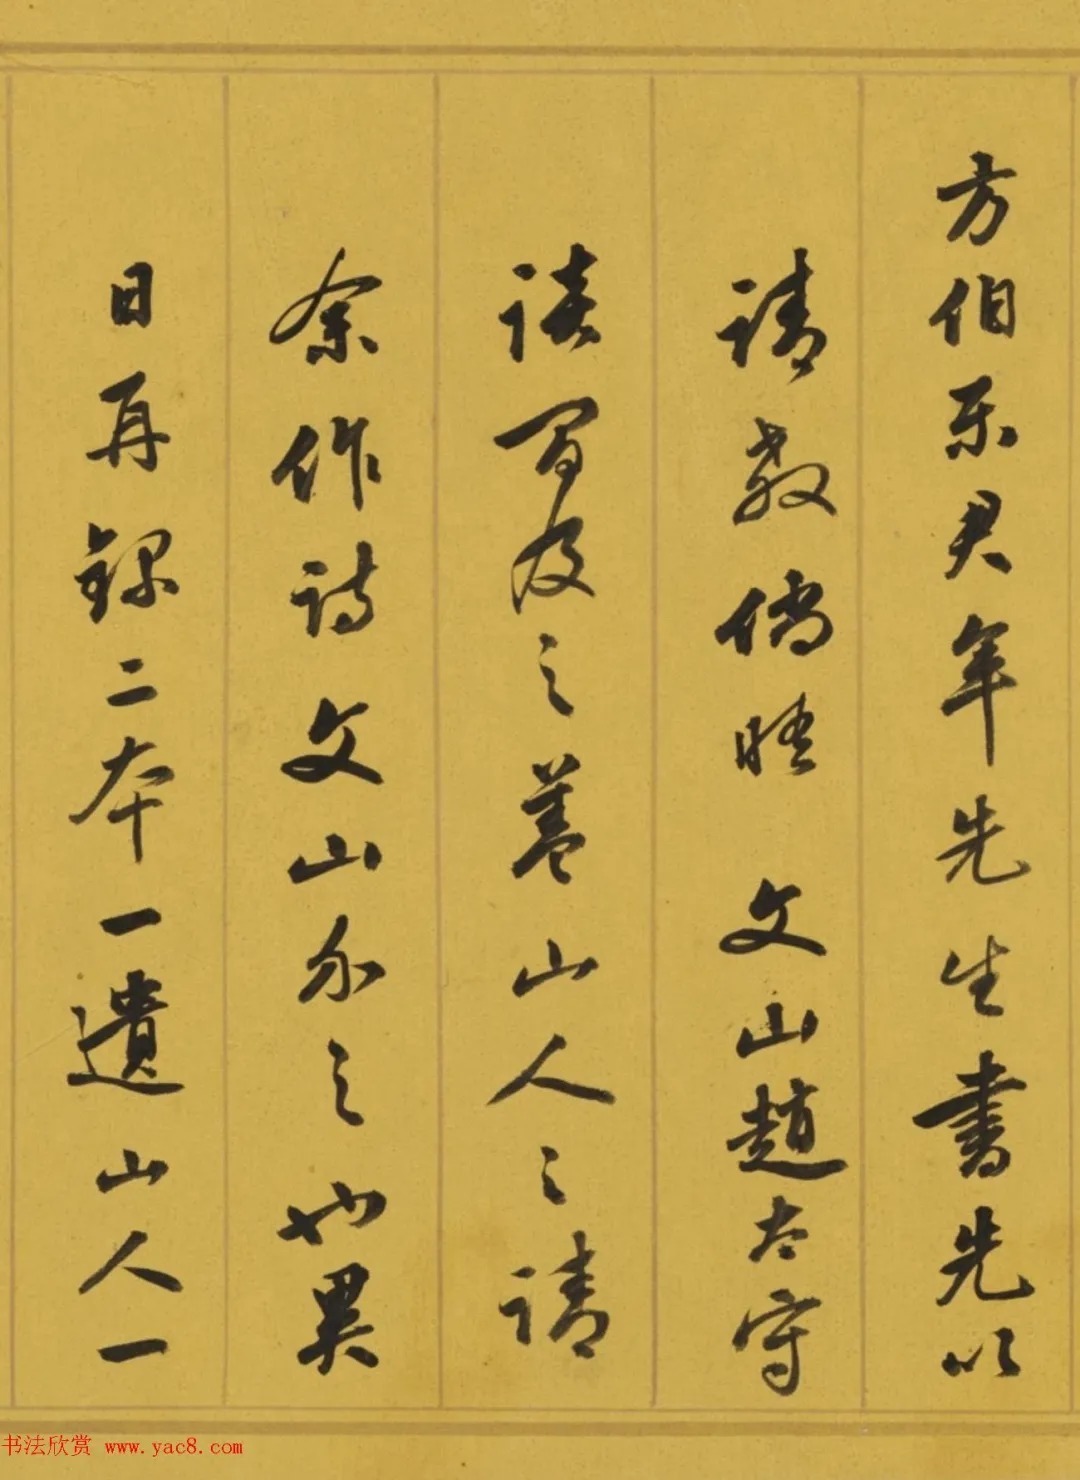 方伯乐君年先生书先以
请教倘晤 文山赵太守
谈间及之盖山人之请
余作诗文山分之也异
日再录二本一遗山人一
书法欣赏 www.yac8.com